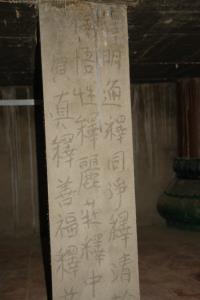 明通釋同淨釋清
悟性釋麗壯釋中
真釋善福釋